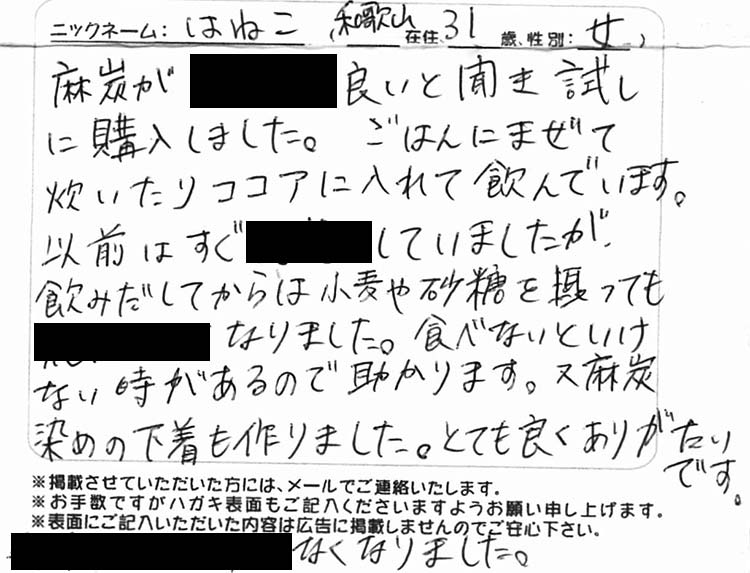 ニックネーム: はねこ (和歌山 在住、31 歳、性別: 女)
麻炭が 良いと聞き 試し
に購入しました。ごはんにまぜて
炊いたりココアに入れて飲んでいます。
以前はすぐ していましたが、
飲みだしてからは小麦や砂糖を摂っても
なりました。食べないといけ
ない時があるので助かります。又麻炭
染めの下着も作りました。とても良くありがたい
です。
※掲載させていただいた方には、メールでご連絡いたします。
※お手数ですがハガキ表面もご記入くださいますようお願い申し上げます。
※表面にご記入いただいた内容は広告に掲載しませんのでご安心下さい。
なくなりました。